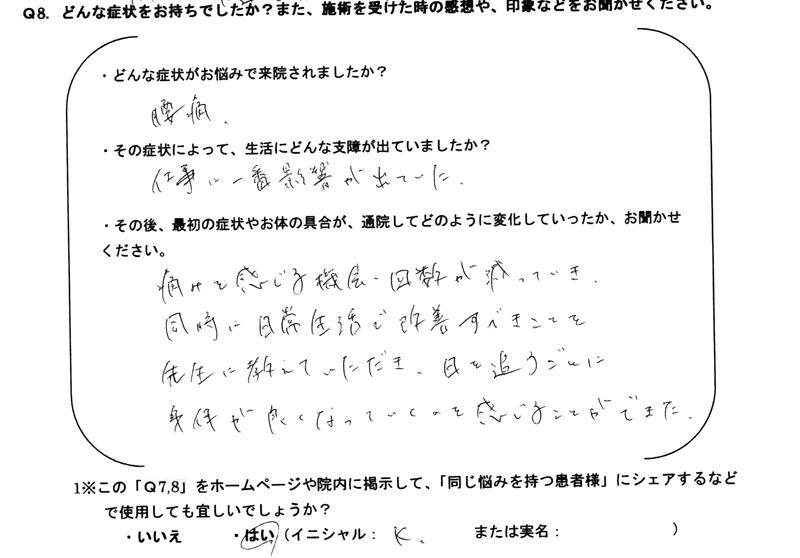 Q8. どんな症状をお持ちでしたか？また、施術を受けた時の感想や、印象などをお聞かせください。
・どんな症状がお悩みで来院されましたか？
腰痛.
・その症状によって、生活にどんな支障が出ていましたか？
仕事に一番影響が出ていた.
・その後、最初の症状やお体の具合が、通院してどのように変化していったか、お聞かせ
ください。
痛みを感じる機会・回数が減っていき.
同時に日常生活で改善すべきことを
先生に教えていただき、日を追うごとに
身体が良くなっていくのを感じることができた.
1※この「Q7,8」をホームページや院内に掲示して、「同じ悩みを持つ患者様」にシェアするなど
で使用しても宜しいでしょうか？
・いいえ ・はい（イニシャル： K. または実名： ）